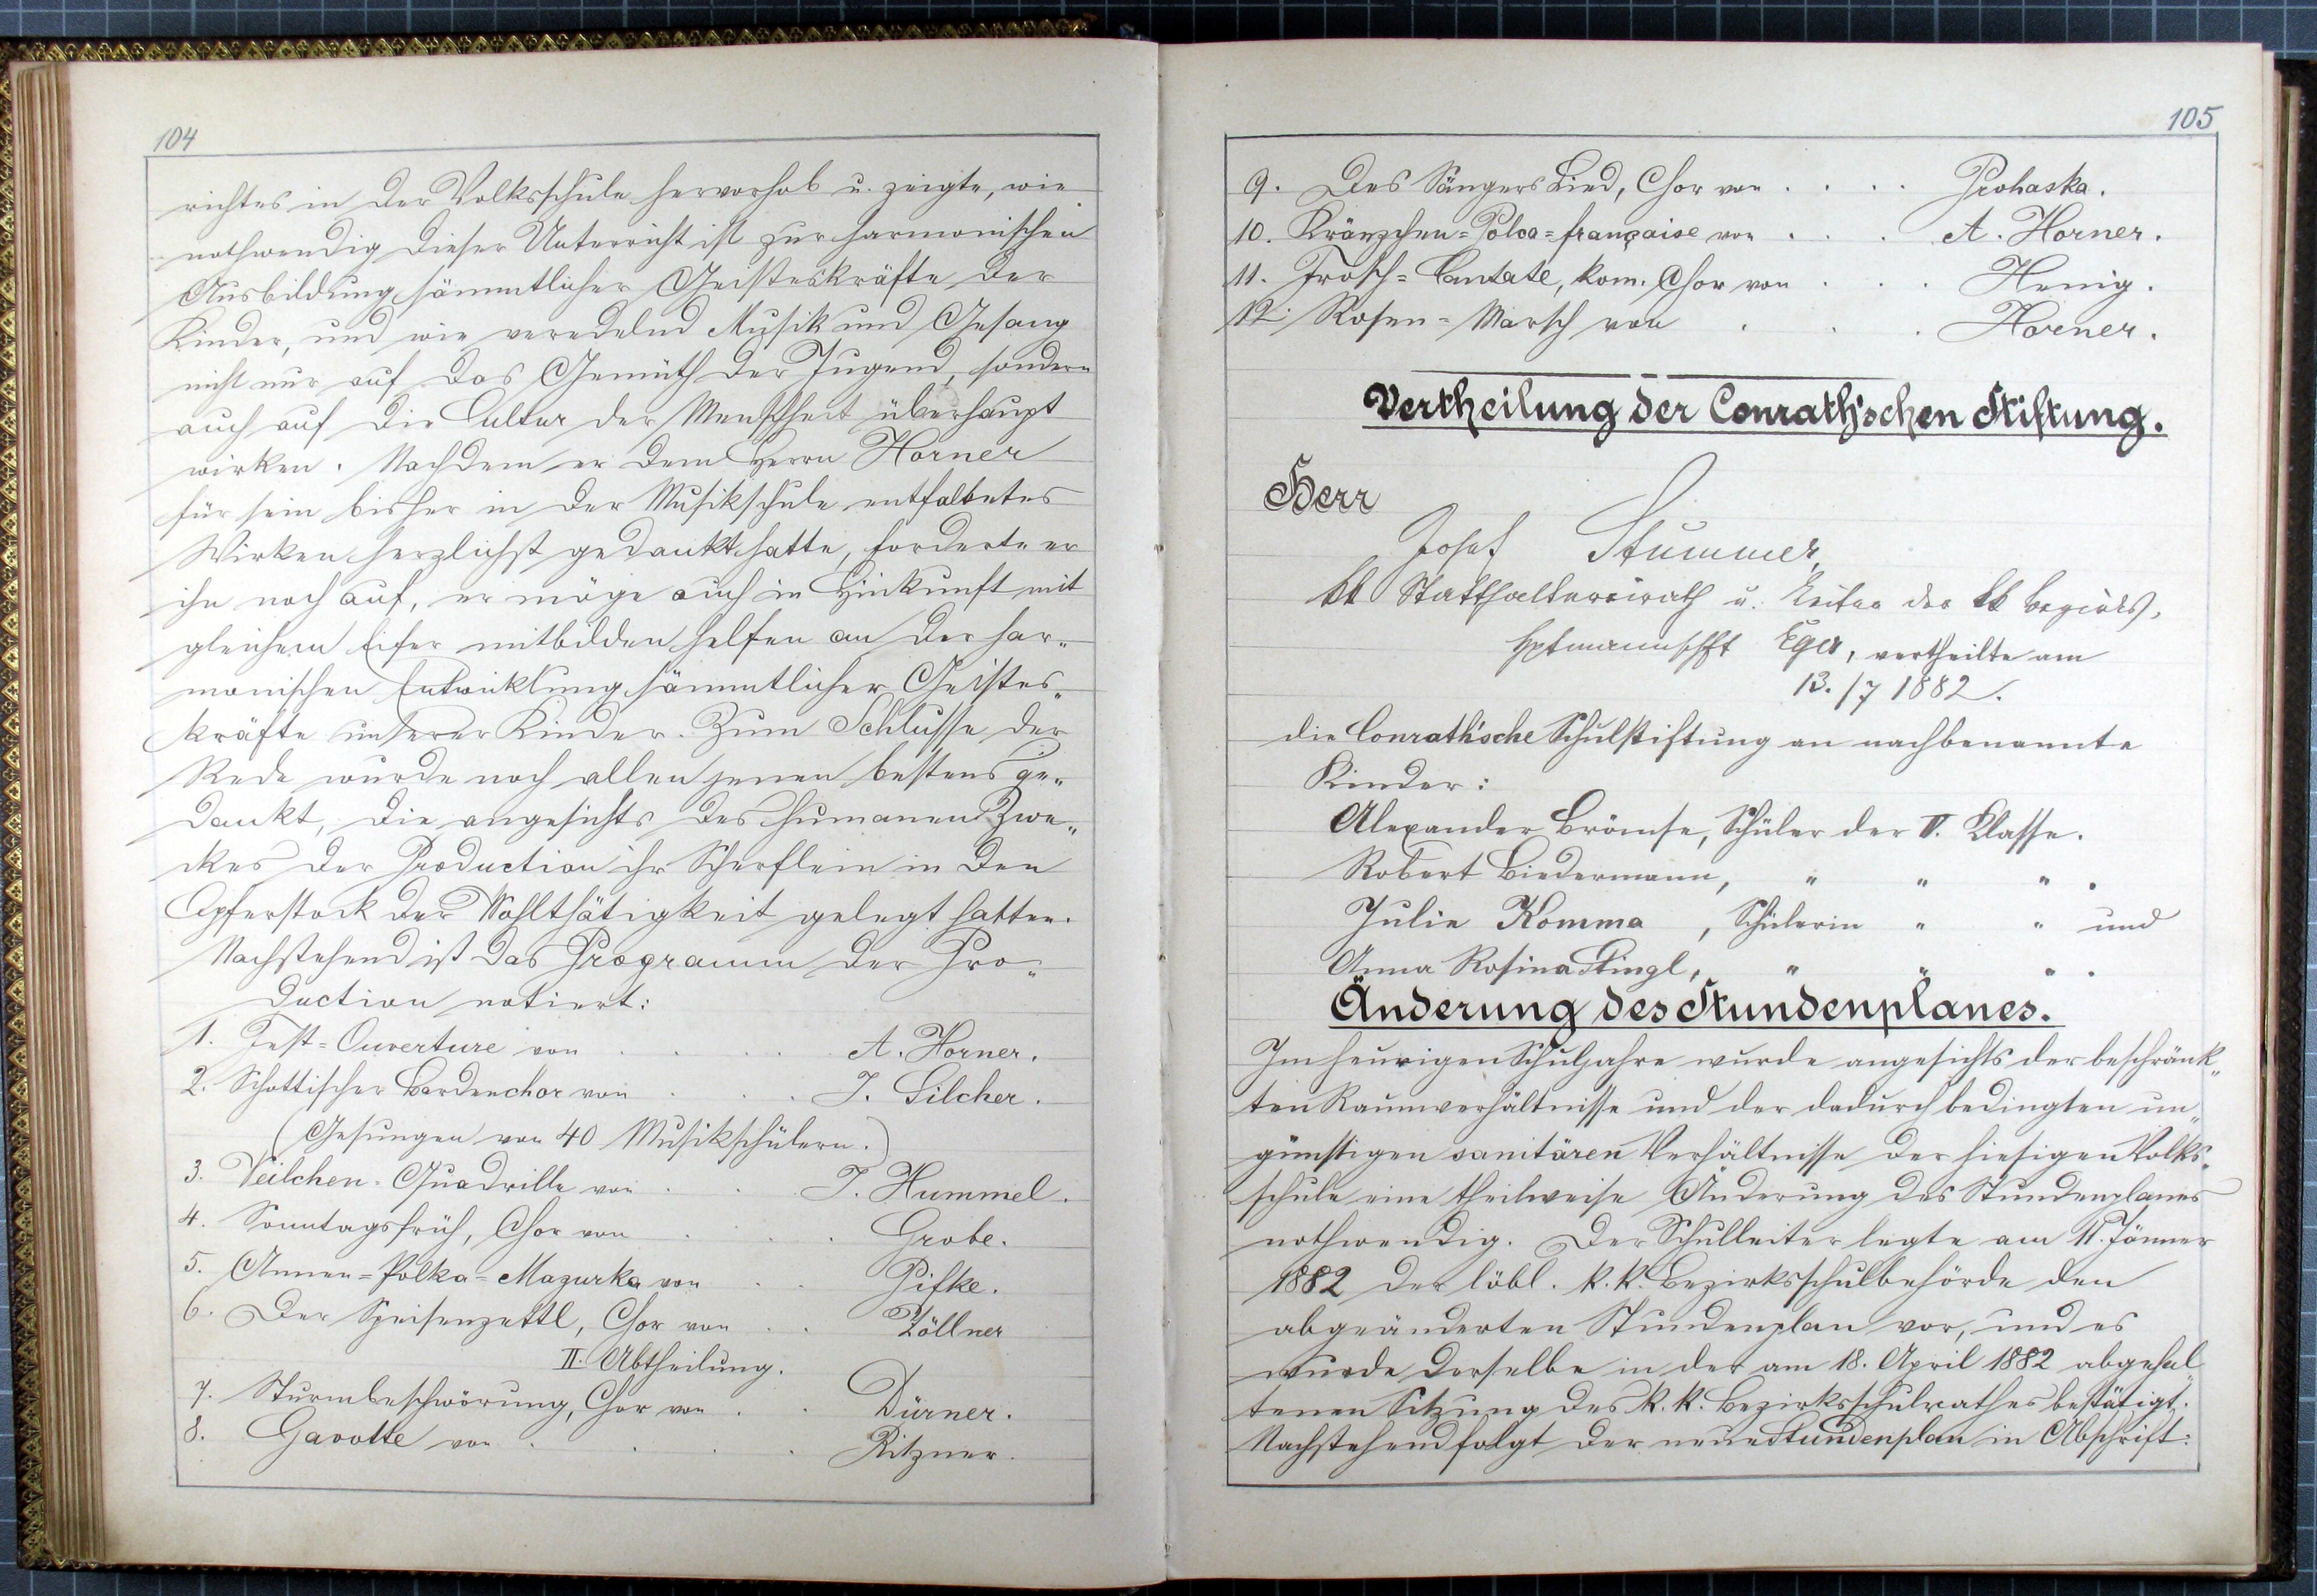 104
richtes in der Volksschule hervorhob u. zeigte, wie
nothwendig dieser Unterricht ist zur harmonischen
Ausbildung sämmtlicher Geisteskräfte der
Kinder, und wie veredelnd Musik und Gesang
nicht nur auf das Gemüth der Jugend, sondern
auch auf die Cultur der Menschheit überhaupt
wirken. Nachdem er dem Herrn Horner
für sein bisher in der Musikschule entfaltetes
Wirken herzlichst gedankt hatte, forderte er
ihn noch auf, er möge auch in Hinkunft mit
gleichem Eifer mitbilden helfen an der har„
monischen Entwicklung sämmtlicher Geistes„
kräfte unserer Kinder. Zum Schlusse der
Rede wurde noch allen jenen bestens ge„
dankt, die angesichts des humanen Zwe„
ckes der Production ihr Scherflein in den
Opferstock der Wohlthätigkeit gelegt hatten.
Nachstehend ist das Programm der Pro„
duction notiert:
1. Fest=Ouverture von . . . . A. Horner.
2. Schottischer Bardenchor von . . . J. Silcher.
(Gesungen von 40 Musikschülern.)
3. Veilchen=Quadrille von . . . J. Hummel.
4. Sonntagsfrüh, Chor von . . . Grobe.
5. Annen=Polka=Mazurka von . . Pifke.
6. Der Speisenzettl, Chor von . . Zöllner
II. Abtheilung.
7. Sturmbeschwörung, Chor von . . Dürner.
8. Gavotte von . . . . Ritzner.
105
9. Des Sängers Lied, Chor von . . . . Prohaska.
10. Kränzchen=Polca=française von . . . A. Horner.
11. Frosch=Cantate, kom. Chor von . . . Hennig.
12. Rosen=Marsch von . . . Horner.
Vertheilung der Conrath'schen Stiftung.
Herr
Josef Stummer,
kk Statthaltereirath u. Leiter der kk Bezirks,
Hptmannschft Eger, vertheilte am
13./7 1882.
die Conrath'sche Schulstiftung an nachbenannte
Kinder:
Alexander Brömse, Schüler der V. Klasse.
Robert Biedermann, " " " .
Julie Komma , Schülerin " " und
Anna Rosina Stingl, " " " .
Änderung des Stundenplanes.
Im heurigen Schuljahre wurde angesichts der beschränk„
ten Raumverhältnisse und der dadurch bedingten un„
günstigen sanitären Verhältnisse der hiesigen Volks„
schule eine theilweise Änderung des Stundenplanes
nothwendig. Der Schulleiter legte am 11. Jänner
1882 der löbl. k. k. Bezirksschulbehörde den
abgeänderten Stundenplan vor, und es
wurde derselbe in der am 18. April 1882 abgehal„
tenen Sitzung des k. k. Bezirksschulrathes bestätigt.
Nachstehend folgt der neue Stundenplan in Abschrift: